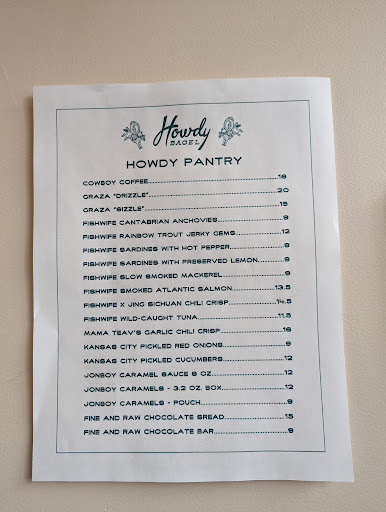 Howdy
BAGEL
HOWDY PANTRY
COWBOY COFFEE 18
GRAZA "DRIZZLE" 20
GRAZA "SIZZLE" 15
FISHWIFE CANTABRIAN ANCHOVIES 9
FISHWIFE RAINBOW TROUT JERKY GEMS 12
FISHWIFE SARDINES WITH HOT PEPPER 9
FISHWIFE SARDINES WITH PRESERVED LEMON 9
FISHWIFE SLOW SMOKED MACKEREL 9
FISHWIFE SMOKED ATLANTIC SALMON 13.5
FISHWIFE X JING SICHUAN CHILI CRISP 14.5
FISHWIFE WILD-CAUGHT TUNA 11.5
MAMA TEAV'S GARLIC CHILI CRISP 16
KANSAS CITY PICKLED RED ONIONS 9
KANSAS CITY PICKLED CUCUMBERS 12
JONBOY CARAMEL SAUCE 8 OZ 12
JONBOY CARAMELS - 3.2 OZ. BOX 12
JONBOY CARAMELS - POUCH 9
FINE AND RAW CHOCOLATE SREAD 15
FINE AND RAW CHOCOLATE BAR 9